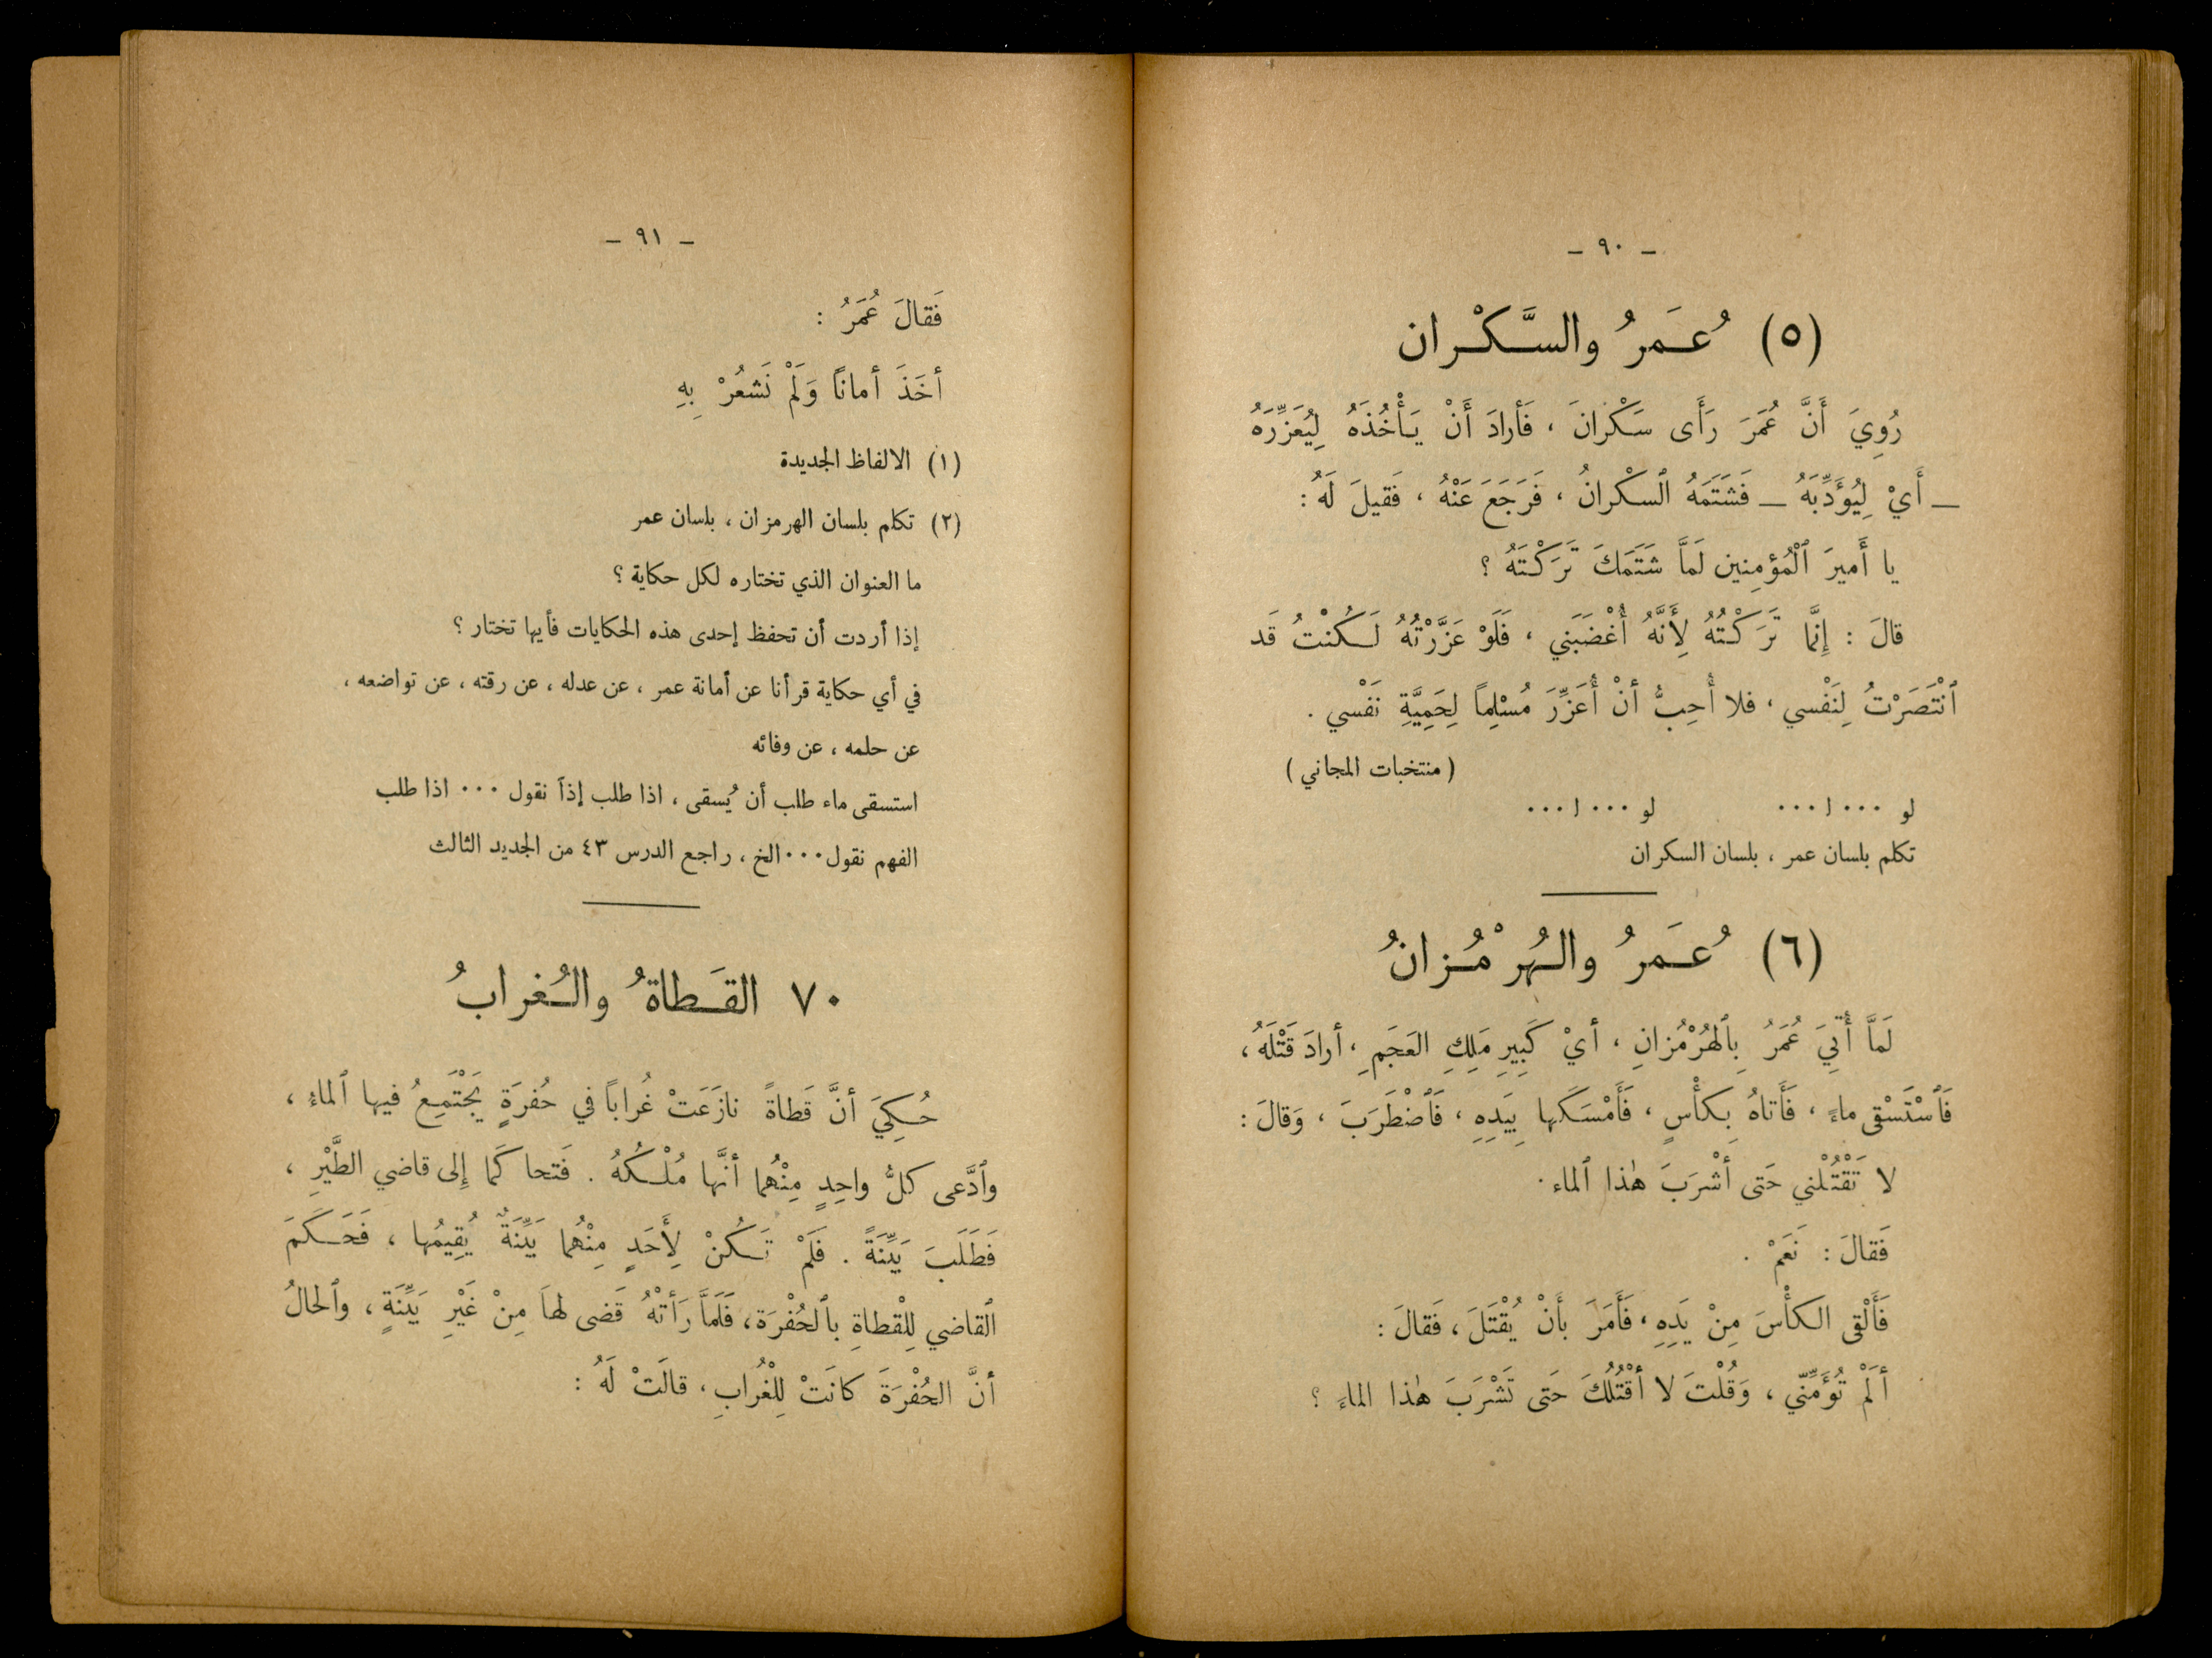 - ٩٠ -
(٥) عُمَرُ والسَّكْران
رُوِيَ أَنَّ عُمَرَ رَأَى سَكْرانَ ، فَأرادَ أَنْ يَأْخُذَهُ لِيُعَزِّرَهُ
ــ أَيْ لِيُؤَدِّبَهُ ــ فَشَتَمَهُ ٱلسكْرانُ ، فَرَجَعَ عَنْهُ ، فَقيلَ لَهُ :
يا أَميرَ ٱلْمُؤمِنين لَمَّا شَتَمَكَ تَرَكْتَهُ ؟
قالَ : إِنَّما تَرَكْتُهُ لِأَنَّهُ أَغْضَبَني ، فَلَوْ عَزَّرْتُهُ لَكُنْتُ قَد
ٱنْتَصَرْتُ لِنَفْسي ، فلا أُحِبُّ أنْ أُعَزِّرَ مُسْلِماً لِحَمِيَّةِ نَفْسي .
( منتخبات المجاني )
لو ٠٠٠ ا ٠٠٠ لو ٠٠٠ ا ٠٠٠
تكلم بلسان عمر ، بلسان السكران
(٦) عُمَرُ والهُرْمُزانُ
لَمَّا أُتِيَ عُمَرُ بِٱلهُرْمُزانِ ، أيْ كَبِيرِ مَلِكِ العَجَمِ ، أرادَ قَتْلَهُ ،
فَٱسْتَسْقى ماءً ، فَأَتاهُ بِكأْسٍ ، فَأَمْسَكَها بِيَدِهِ ، فَٱضْطَرَبَ ، وَقالَ :
لا تَقْتُلْني حَتى أشْرَبَ هٰذا ٱلماء .
فَقالَ : نَعَمْ .
فَأَلْقى الكأْسَ مِنْ يَدِهِ ، فَأَمَرَ بأَنْ يُقْتَلَ ، فَقالَ :
أَلَمْ تُؤَمِّنّي ، وَقُلْتَ لا أقْتُلُكَ حَتى تَشْرَبَ هٰذا الماءَ ؟
- ٩١ -
فَقالَ عُمَرُ :
أخَذَ أماناً وَلَمْ نَشعُرْ بِهِ
(١) الالفاظ الجديدة
(٢) تكلم بلسان الهرمزان ، بلسان عمر
ما العنوان الذي تختاره لكل حكاية ؟
إذا أردت أن تحفظ إحدى هذه الحكايات فأيها تختار ؟
في أي حكاية قرأنا عن أمانة عمر ، عن عدله ، عن رقته ، عن تواضعه ،
عن حلمه ، عن وفائه
استسقى ماء طلب أن يُسقى ، اذا طلب إذاً نقول ٠٠٠ اذا طلب
الفهم نقول ٠٠٠ الخ ، راجع الدرس ٤٣ من الجديد الثالث
٧٠ القَطاةُ والغُرابُ
حُكِيَ أنَّ قَطاةً نازَعَتْ غُراباً في حُفرَةٍ يَجْتَمِعُ فيها ٱلماءُ ،
وٱدَّعى كلُّ واحِدٍ مِنْهُما أنَّها مُلْكُهُ . فَتحا كَما إِلى قاضي الطَّيْرِ ،
فَطَلَبَ بَيِّنَةً . فَلَمْ تَكُنْ لِأَحَدٍ مِنْهُما بَيِّنَةٌ يُقِيمُها ، فَحَكَمَ
ٱلقاضي لِلْقطاةِ بٱلحُفْرَة ، فَلَمَّا رَأتْهُ قَضى لها مِنْ غَيْرِ بَيِّنَةٍ ، وٱلحالُ
أنَّ الحُفْرَةَ كانَتْ لِلْغُرابِ ، قالَتْ لَهُ :